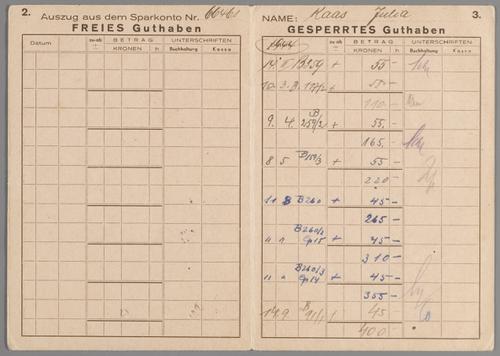 2.
Auszug aus dem Sparkonto Nr.
FREIES Guthaben
Datum
zu-ab
±
BETRAG
KRONEN
h
UNTERSCHRIFTEN
Buchhaltung
Kassa
NAME: Kaas Julia
3.
GESPERRTES Guthaben
zu-ab
±
BETRAG
KRONEN
h
UNTERSCHRIFTEN
Buchhaltung
Kassa
1944
+ 55 -
+ 55 -
110 -
9. 4. + 55.
165 -
8 5 + 55 -
220 -
11 8 B260 + 45 -
265 -
" " B260/2 + 45 -
310 -
" " B260/3 + 45 -
355 -
14.9 45 -
400 -